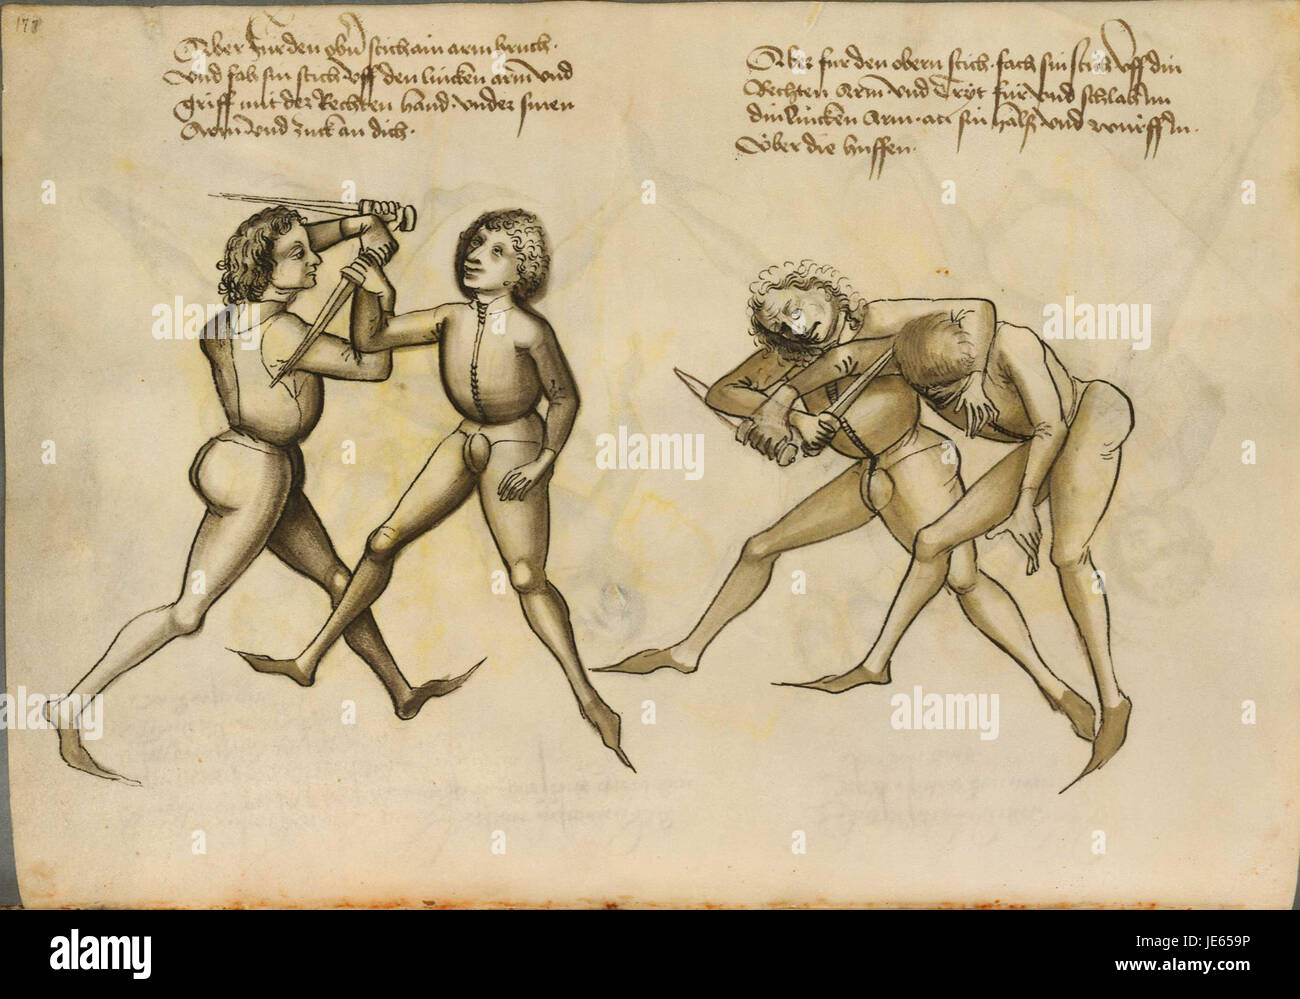 178
Aber für den obern stich ain arm bruch.
Und fah sin stich uff den lincken arm und
griff mit der Rechten hand under sinen
Arm und zuck an dich.
Aber fur den obern stich. fach sin stich uff din
Rechten Arm und Tryt für und schlah im
din lincken Arm an sin halß und wurff in
Über die huffen.
a
alamy stock photo
alamy
JE659P
www.alamy.com